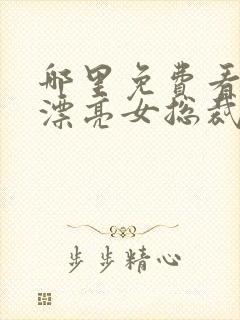 哪里免费看
漂亮女总裁
步步精心